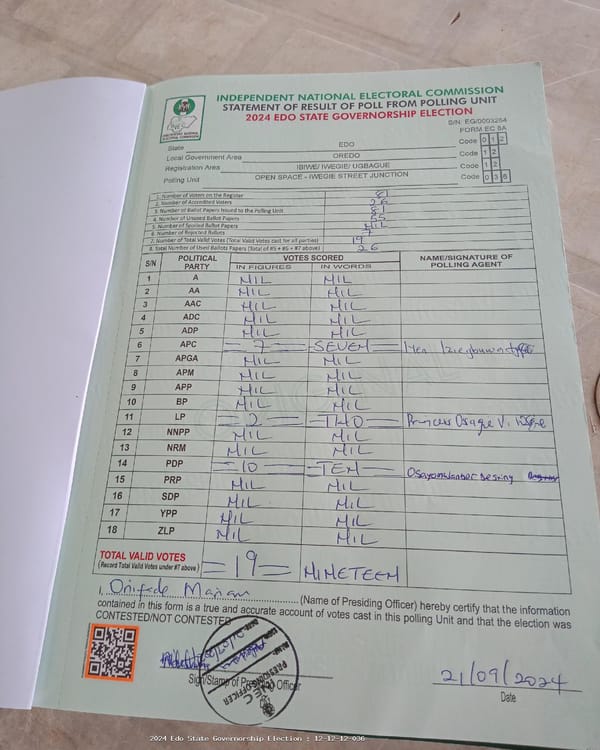 INDEPENDENT NATIONAL ELECTORAL COMMISSION
STATEMENT OF RESULT OF POLL FROM POLLING UNIT
2024 EDO STATE GOVERNORSHIP ELECTION
S/N: EG/0003264
FORM EC 8A
State EDO Code 0 1 2
Local Government Area OREDO Code 1 2
Registration Area IBIWE/ IWEGIE/ UGBAGUE Code 1 2
Polling Unit OPEN SPACE - IWEGIE STREET JUNCTION Code 0 3 6
1. Number of Voters on the Register 81
2. Number of Accredited Voters 26
3. Number of Ballot Papers Issued to the Polling Unit 81
4. Number of Unused Ballot Papers 55
5. Number of Spoiled Ballot Papers NIL
6. Number of Rejected Ballots 7
7. Number of Total Valid Votes (Total Valid Votes cast for all parties) 19
8. Total Number of Used Ballot Papers (Total of #5 + #6 + #7 above) 26
S/N POLITICAL PARTY VOTES SCORED NAME/SIGNATURE OF POLLING AGENT
IN FIGURES IN WORDS
1 A NIL NIL
2 AA NIL NIL
3 AAC NIL NIL
4 ADC NIL NIL
5 ADP NIL NIL
6 APC = 7 = SEVEN =
7 APGA NIL NIL
8 APM NIL NIL
9 APP NIL NIL
10 BP NIL NIL
11 LP = 2 = TWO = Princess Osague V.
12 NNPP NIL NIL
13 NRM NIL NIL
14 PDP = 10 = TEN =
15 PRP NIL NIL
16 SDP NIL NIL
17 YPP NIL NIL
18 ZLP NIL NIL
TOTAL VALID VOTES = 19 = NINETEEN
(Record Total Valid Votes under #7 above)
I, Onifade Mariam (Name of Presiding Officer) hereby certify that the information
contained in this form is a true and accurate account of votes cast in this polling Unit and that the election was
CONTESTED/NOT CONTESTED
PRESIDING OFFICER
INEC
Sign/Stamp of Presiding Officer
21/09/2024
Date
2024 Edo State Governorship Election : 12-12-12-036